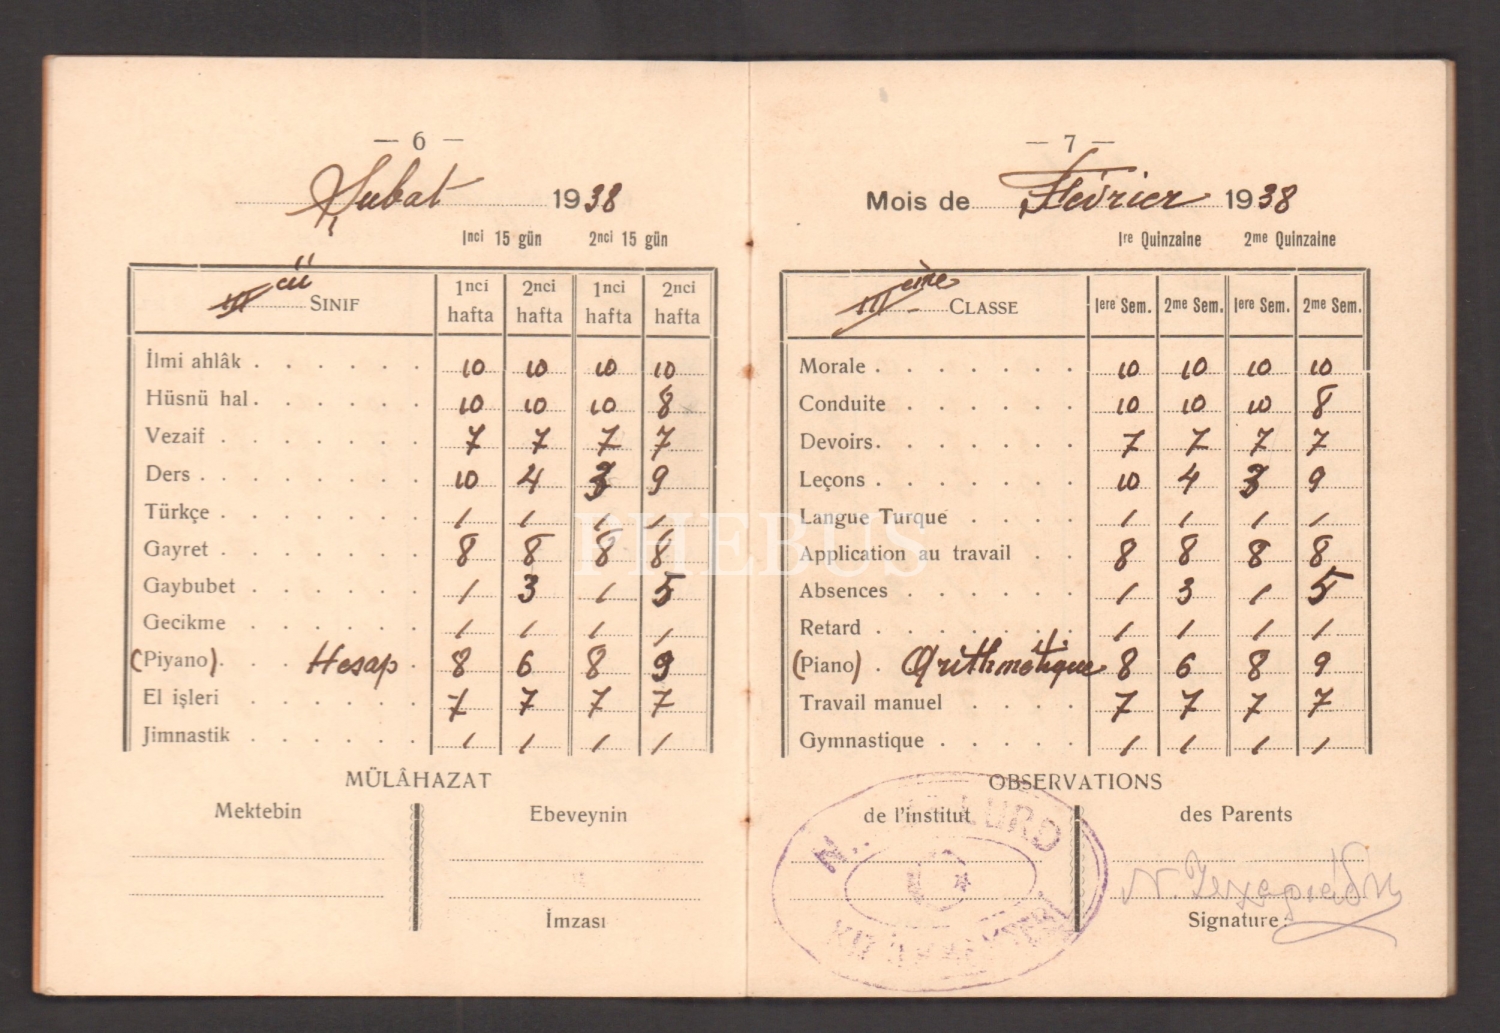 — 6 —
Şubat 1938
1nci 15 gün 2nci 15 gün
III cü SINIF 1nci hafta 2nci hafta 1nci hafta 2nci hafta
İlmi ahlâk . . . . . . 10 10 10 10
Hüsnü hal . . . . . . 10 10 10 8
Vezaif . . . . . . . 7 7 7 7
Ders . . . . . . . 10 4 3 9
Türkçe . . . . . . / / / /
Gayret . . . . . . 8 8 8 8
Gaybubet . . . . . . / 3 / 5
Gecikme . . . . . . / / / /
(Piyano) . . . Hesap . 8 6 8 9
El işleri . . . . . . 7 7 7 7
Jimnastik . . . . . . / / / /
MÜLÂHAZAT
Mektebin Ebeveynin
İmzası
— 7 —
Mois de Février 1938
1re Quinzaine 2me Quinzaine
III ème CLASSE 1ere Sem. 2me Sem. 1ere Sem. 2me Sem.
Morale . . . . . . . 10 10 10 10
Conduite . . . . . . 10 10 10 8
Devoirs . . . . . . . 7 7 7 7
Leçons . . . . . . . 10 4 3 9
Langue Turque . . . . / / / /
Application au travail . . 8 8 8 8
Absences . . . . . . / 3 / 5
Retard . . . . . . / / / /
(Piano) . Arithmétique 8 6 8 9
Travail manuel . . . . 7 7 7 7
Gymnastique . . . . . / / / /
OBSERVATIONS
de l'institut des Parents
Signature:
PHEBUS